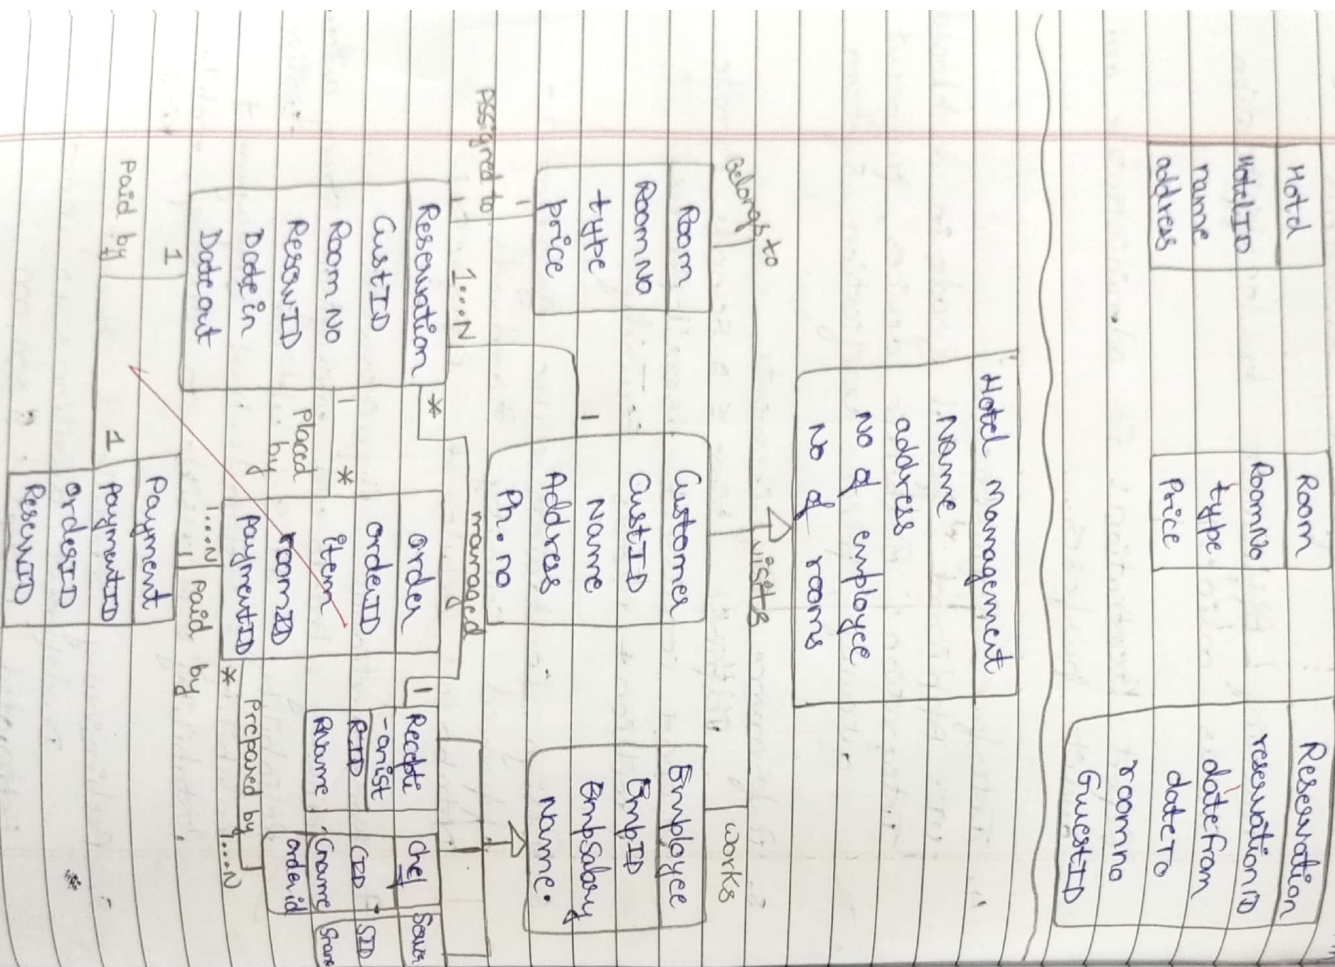 Hotel
HotelID
name
address
Room
RoomNo
type
Price
Reservation
reservationID
datefrom
dateTo
roomno
GuestID
Hotel management
Name
address
No of employee
No of rooms
Belongs to
visits
works
Room
RoomNo
type
price
Customer
CustID
Name
Address
Ph. no
Employee
EmpID
EmpSalary
Name.
Assigned to
1
1
1...N
1
managed
*
1
Reservation
CustID
Room No
ReservID
Date in
Date out
1
Placed
by
*
order
orderID
item
roomID
PaymentID
Recepti
-onist
RID
RName
Chef
CID
Cname
orderid
Server
SID
*
Prepared by
1...N
1
Paid by
1
1...N
Paid by
Payment
PaymentID
orderID
ReservID